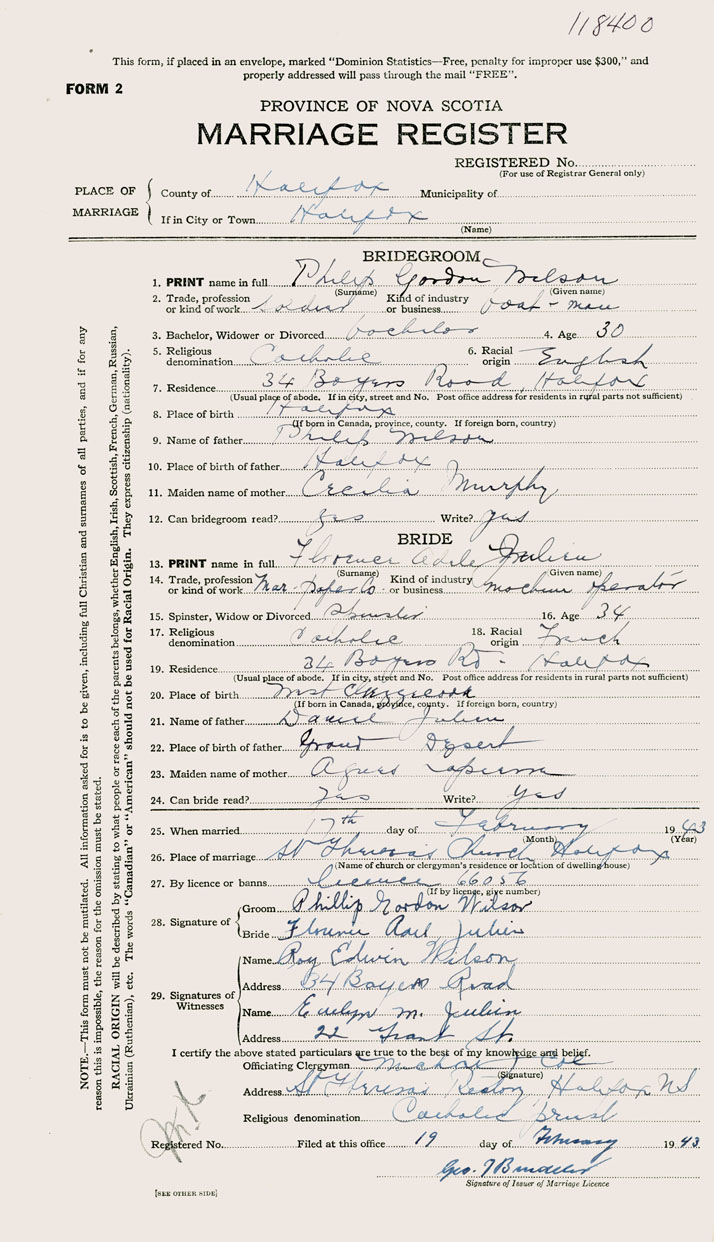 118400
This form, if placed in an envelope, marked "Dominion Statistics—Free, penalty for improper use $300," and
properly addressed will pass through the mail "FREE".
FORM 2
PROVINCE OF NOVA SCOTIA
MARRIAGE REGISTER
REGISTERED No.
(For use of Registrar General only)
PLACE OF MARRIAGE
County of Halifax Municipality of
If in City or Town Halifax
(Name)
BRIDEGROOM
1. PRINT name in full Philip Gordon Wilson
(Surname) (Given name)
2. Trade, profession or kind of work Soldier Kind of industry or business boat-man
3. Bachelor, Widower or Divorced bachelor 4. Age 30
5. Religious denomination Catholic 6. Racial origin English
7. Residence 34 Boyers Road, Halifax
(Usual place of abode. If in city, street and No. Post office address for residents in rural parts not sufficient)
8. Place of birth Halifax
(If born in Canada, province, county. If foreign born, country)
9. Name of father Philip Wilson
10. Place of birth of father Halifax
11. Maiden name of mother Cecilia Murphy
12. Can bridegroom read? yes Write? yes
BRIDE
13. PRINT name in full Florence Adele Julien
(Surname) (Given name)
14. Trade, profession or kind of work Mar. Paper Co Kind of industry or business machine operator
15. Spinster, Widow or Divorced Spinster 16. Age 34
17. Religious denomination Catholic 18. Racial origin French
19. Residence 34 Boyers Rd - Halifax
(Usual place of abode. If in city, street and No. Post office address for residents in rural parts not sufficient)
20. Place of birth West Chezzetcook
(If born in Canada, province, county. If foreign born, country)
21. Name of father Daniel Julien
22. Place of birth of father Grand Desert
23. Maiden name of mother Agnes Lapierre
24. Can bride read? Yes Write? Yes
25. When married 17th day of February 1943
(Month) (Year)
26. Place of marriage St Theresa's Church Halifax
(Name of church or clergyman's residence or location of dwelling house)
27. By licence or banns licence 66056
(If by licence, give number)
28. Signature of
Groom Phillip Gordon Wilson
Bride Florence Julien
29. Signatures of Witnesses
Name Roy Edwin Wilson
Address 34 Boyers Road
Name Evelyn M. Julien
Address 22 Grant St.
I certify the above stated particulars are true to the best of my knowledge and belief.
Officiating Clergyman Michael Coe
(Signature)
Address St Theresa's Rectory Halifax NS
Religious denomination Catholic priest
Registered No. Filed at this office 19 day of February 1943
Geo.
Signature of Issuer of Marriage Licence
[SEE OTHER SIDE]
NOTE.—This form must not be mutilated. All information asked for is to be given, including full Christian and surnames of all parties, and if for any
reason this is impossible, the reason for the omission must be stated.
RACIAL ORIGIN will be described by stating to what people or race each of the parents belongs, whether English, Irish, Scottish, French, German, Russian,
Ukrainian (Ruthenian), etc. The words "Canadian" or "American" should not be used for Racial Origin. They express citizenship (nationality).